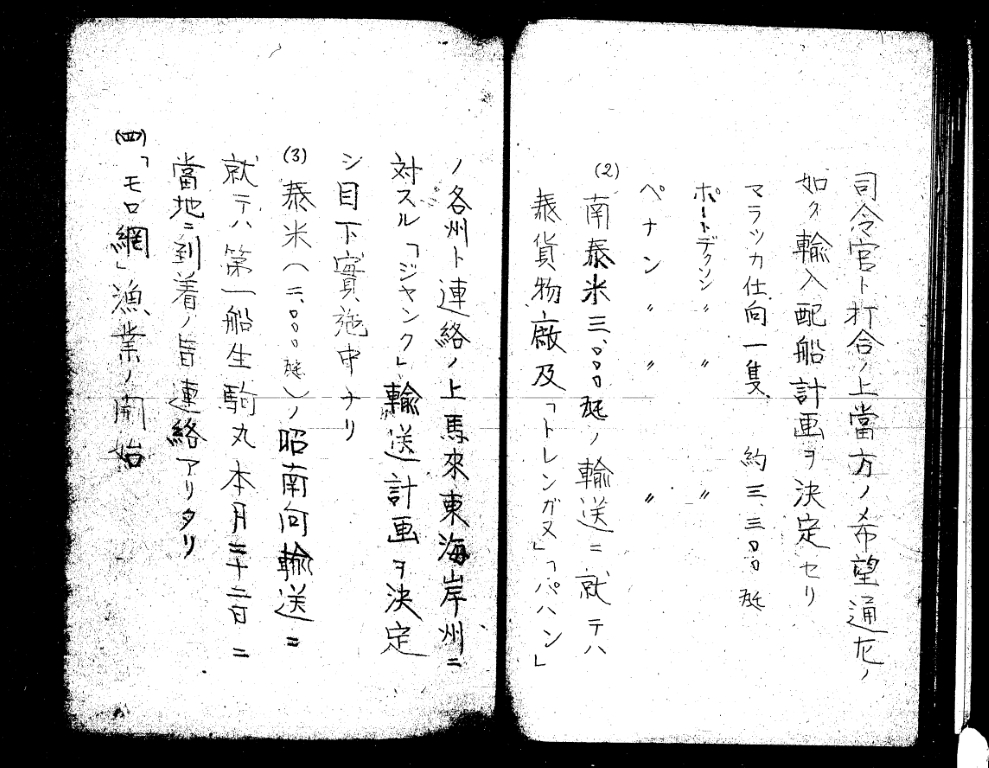 司令官ト打合ノ上當方ノメ希望通左ノ
如ク輸入配船計画ヲ決定セリ
マラッカ仕向一隻 約三、三〇〇瓲
ポートデクソン〃 〃 〃
ペナン〃 〃 〃
(2)南泰米三、〇〇〇瓲ノ輸送ニ就テハ
泰貨物廠及「トレンガヌ」「パハン」
ノ各州ト連絡ノ上馬來東海岸州ニ
対スル「ジャンク」輸送計画ヲ決定
シ目下實施中ナリ
(3)泰米(二、〇〇〇瓲)ノ昭南向輸送ニ
就テハ第一船生駒丸本月二十二日ニ
當地ニ到着ノ旨連絡アリタリ
(四)「モロ網」漁業ノ開始